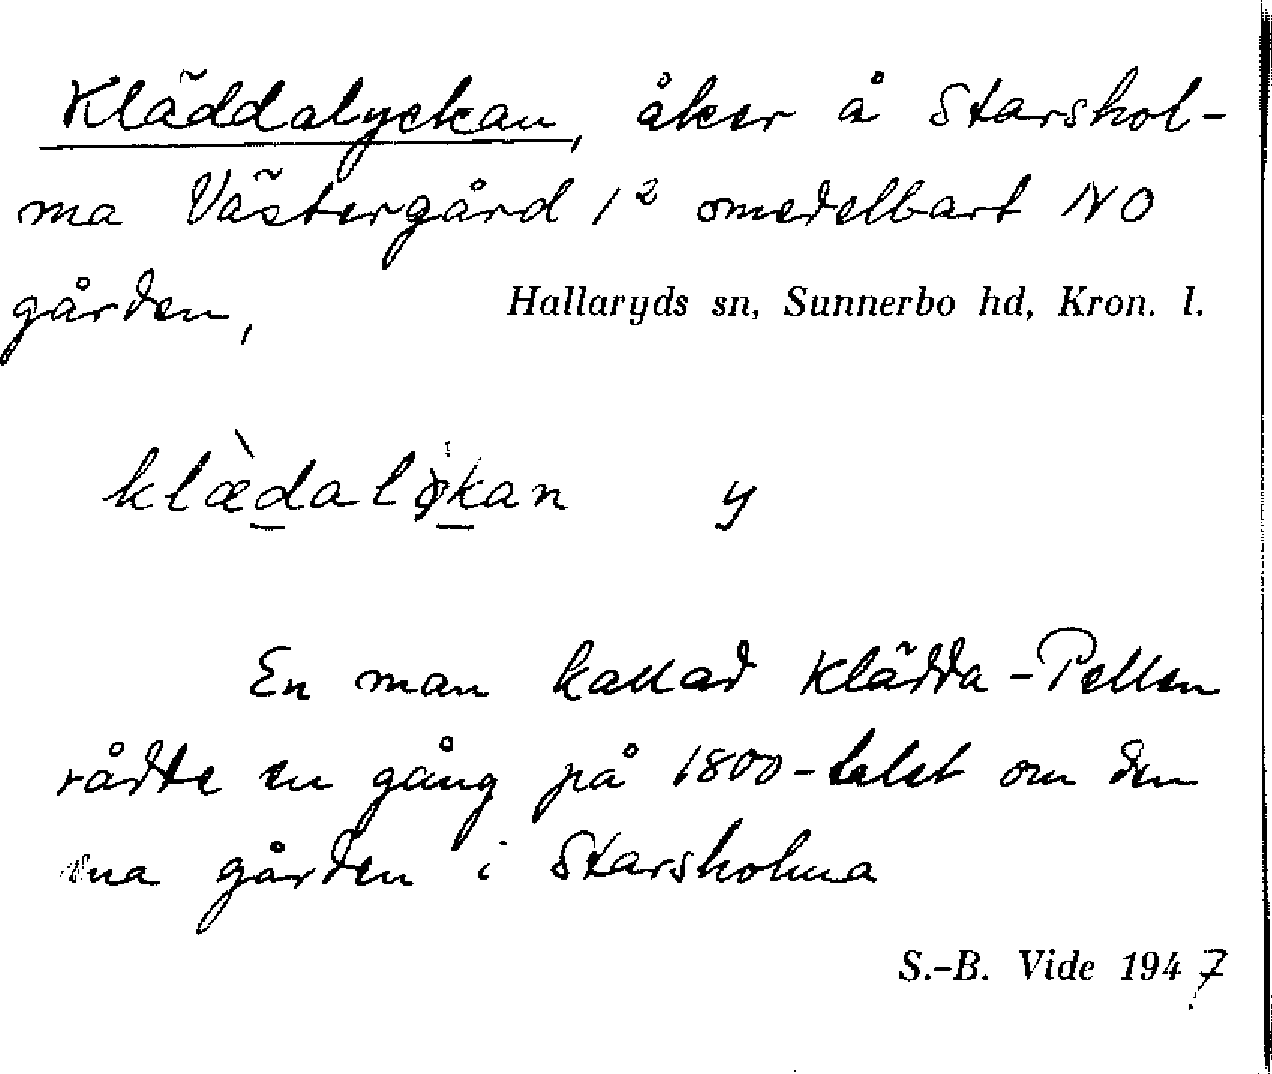 Kläddalyckan, åker å Starshol-
ma Västergård 1² omedelbart NO
gården,
Hallaryds sn, Sunnerbo hd, Kron. l.
klædaløkan y
En man kallad Klädda-Pellen
rådte en gång på 1800-talet om den
ena gården i Starsholma
S.-B. Vide 1947